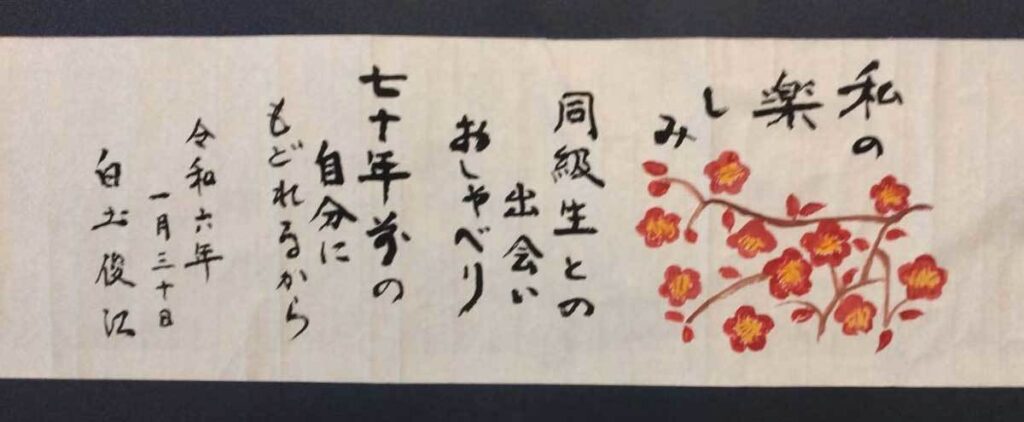 私の
楽
し
み
同級生との
出会い
おしゃべり
七十年前の
自分に
もどれるから
令和六年
一月三十日
白土俊江